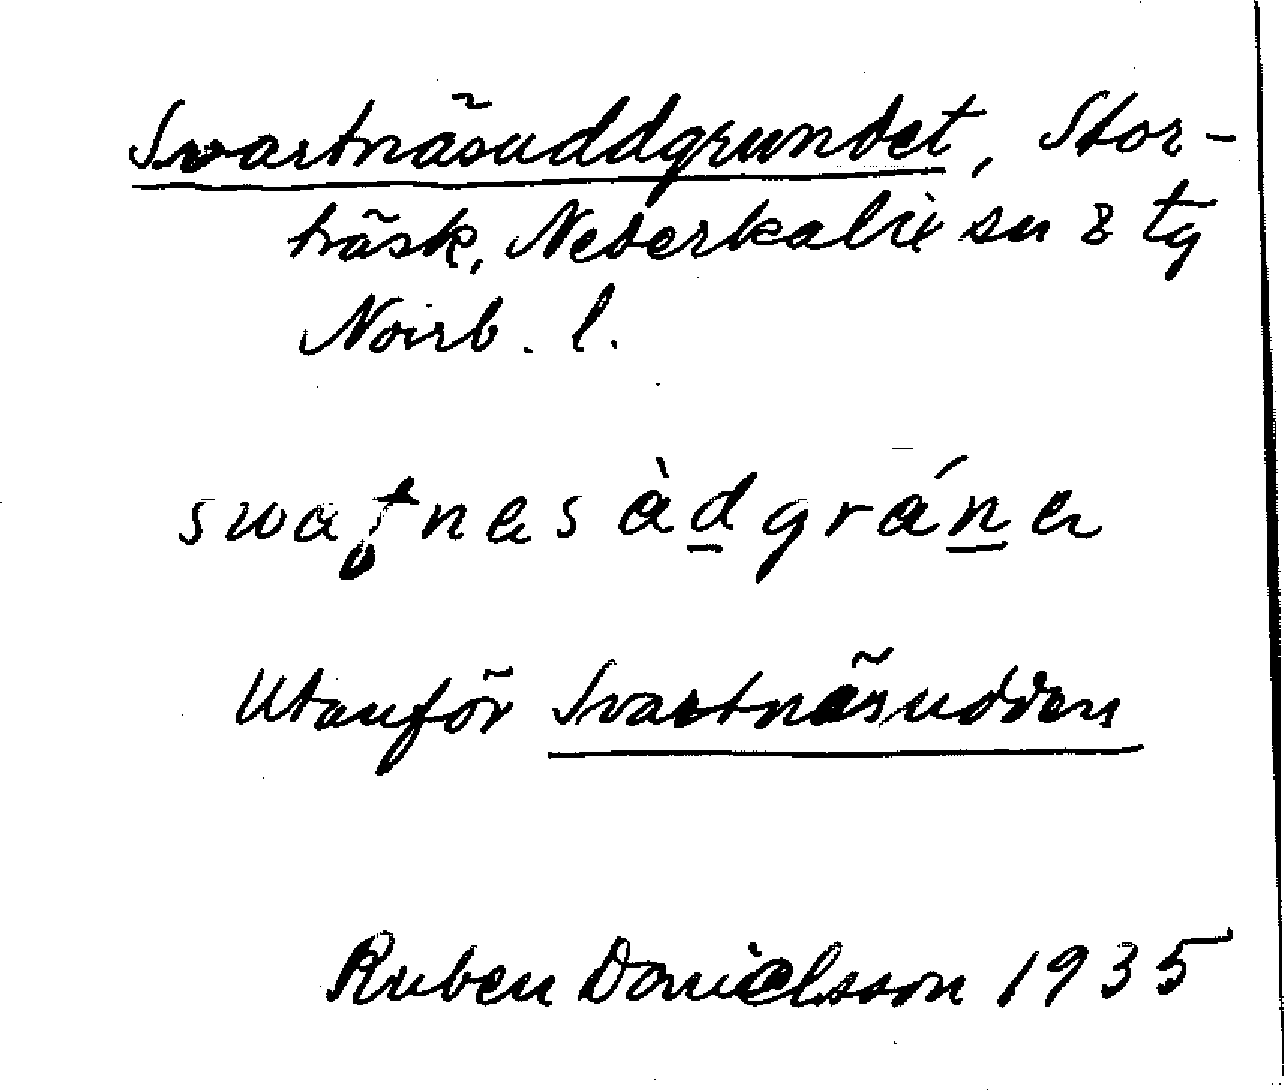 Svartnäsuddgrundet, Stor-
träsk, Nederkalix sn & tg
Norrb. l.
Utanför Svartnäsudden
Ruben Danielsson 1935